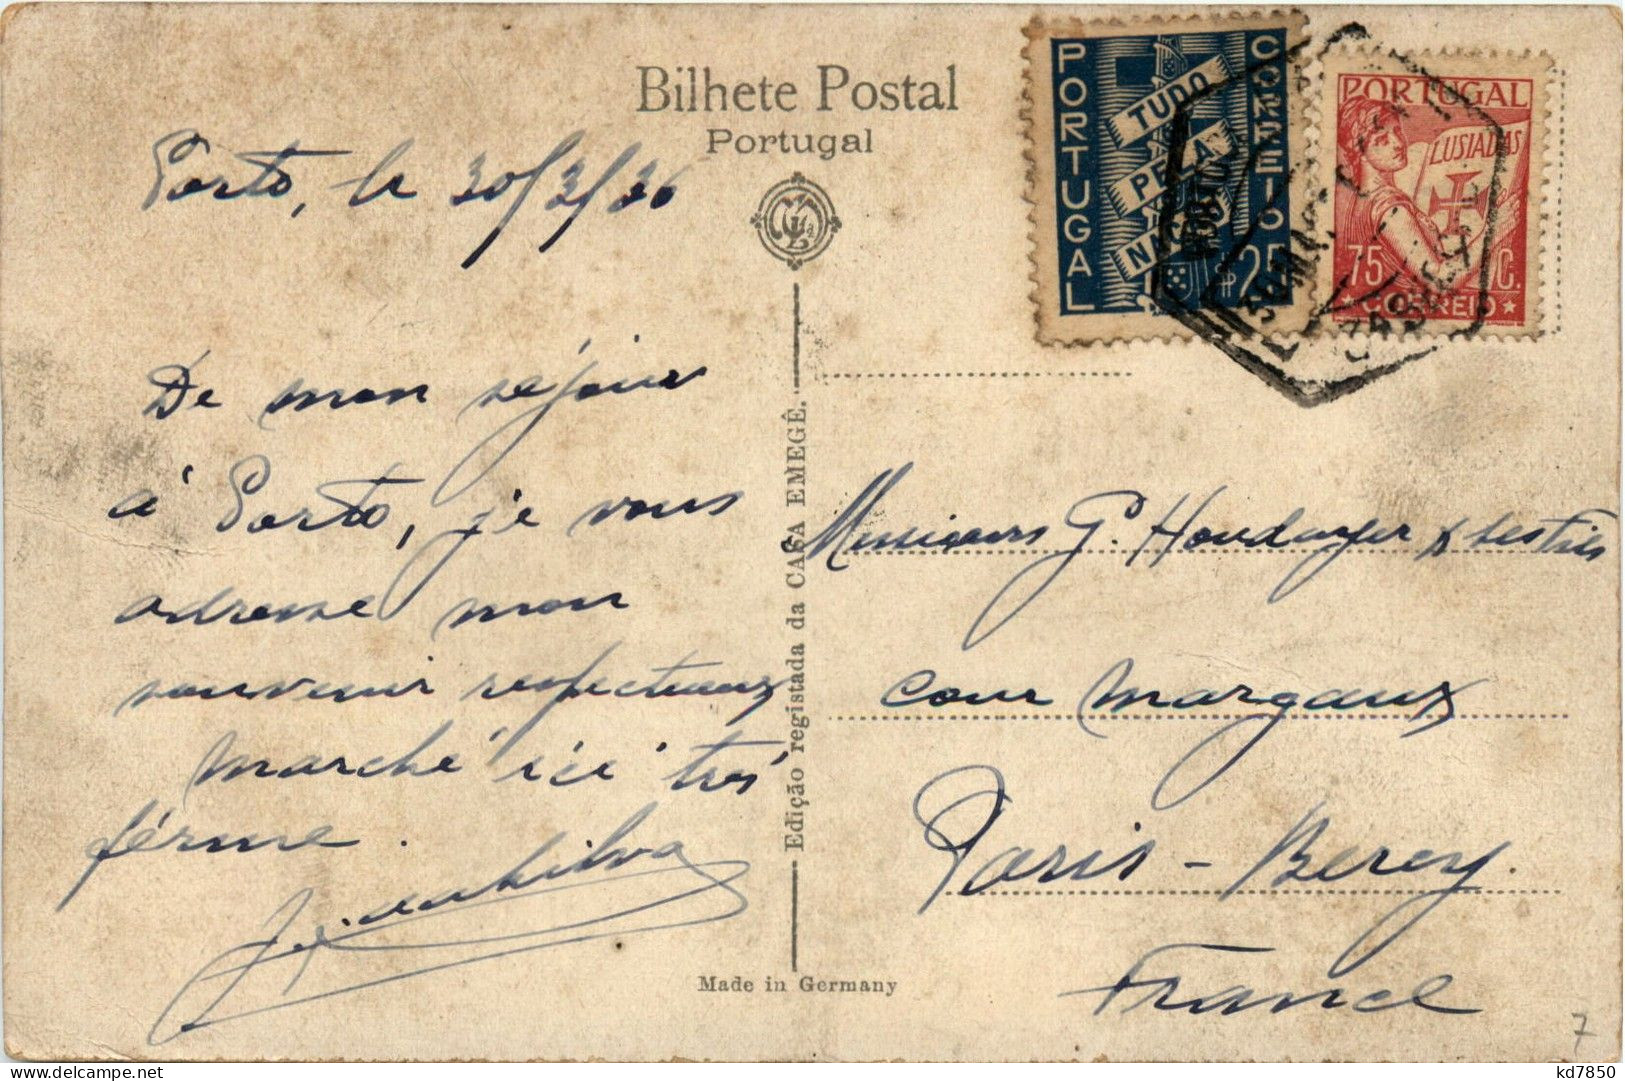 Bilhete Postal
Portugal
Porto, le 30/3/36
De mon séjour
à Porto, je vous
adresse mon
souvenir respectueux
marché ici trés
férme.
Silva
Edição registada da CASA EMEGÊ.
Made in Germany
PORTUGAL
CORREIO
TUDO
PELA
NAÇÃO
$25
PORTUGAL
LUSIADAS
75 C.
CORREIO
Messieurs G. Houdayer &
cour Margaux
Paris - Bercy.
France
7
kd7850